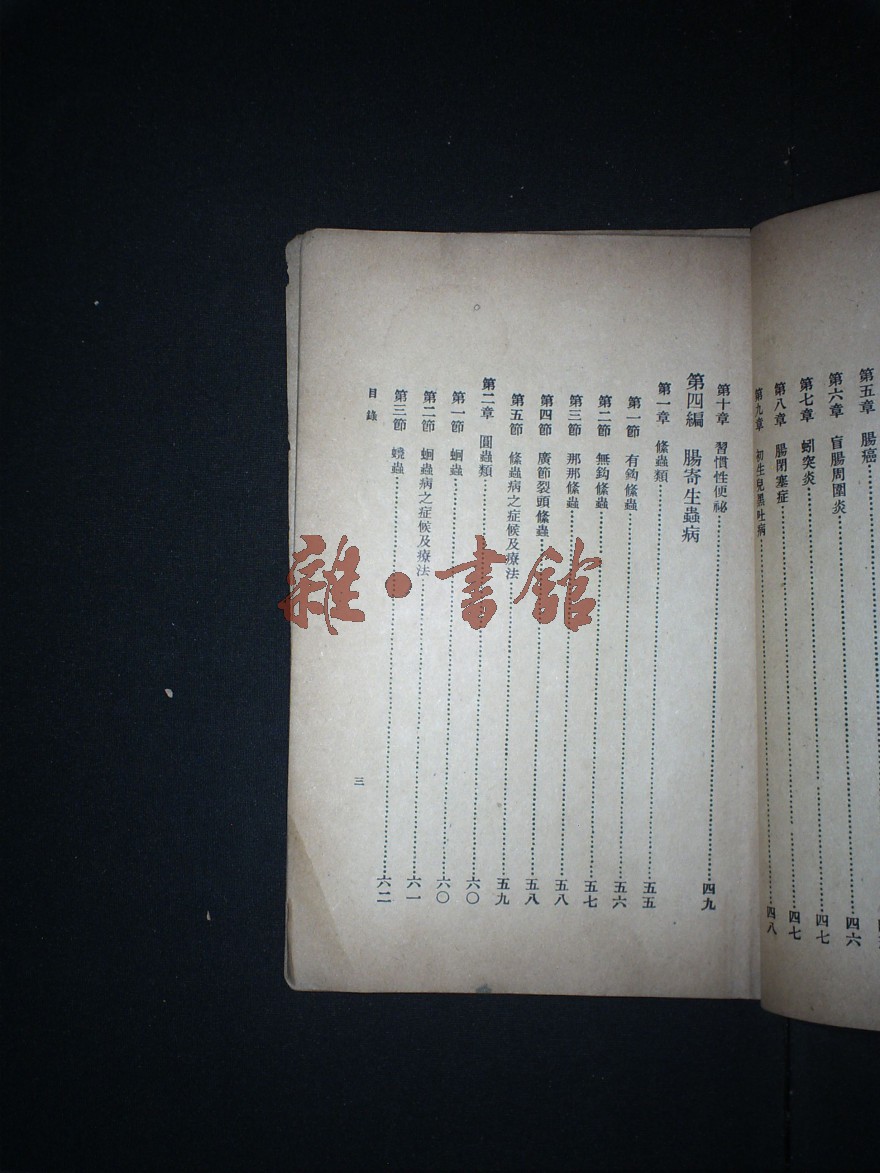 第五章 腸癌
第六章 盲腸周圍炎 四六
第七章 蚓突炎 四七
第八章 腸閉塞症 四七
第九章 初生兒黑吐病 四八
第十章 習慣性便祕 四九
第四編 腸寄生蟲病
第一章 絛蟲類 五五
第一節 有鈎絛蟲 五六
第二節 無鈎絛蟲 五七
第三節 那那絛蟲 五八
第四節 廣節裂頭絛蟲 五八
第五節 絛蟲病之症候及療法 五九
第二章 圓蟲類 六〇
第一節 蛔蟲 六〇
第二節 蛔蟲病之症候及療法 六一
第三節 蟯蟲 六二
目錄
三
雜·書館